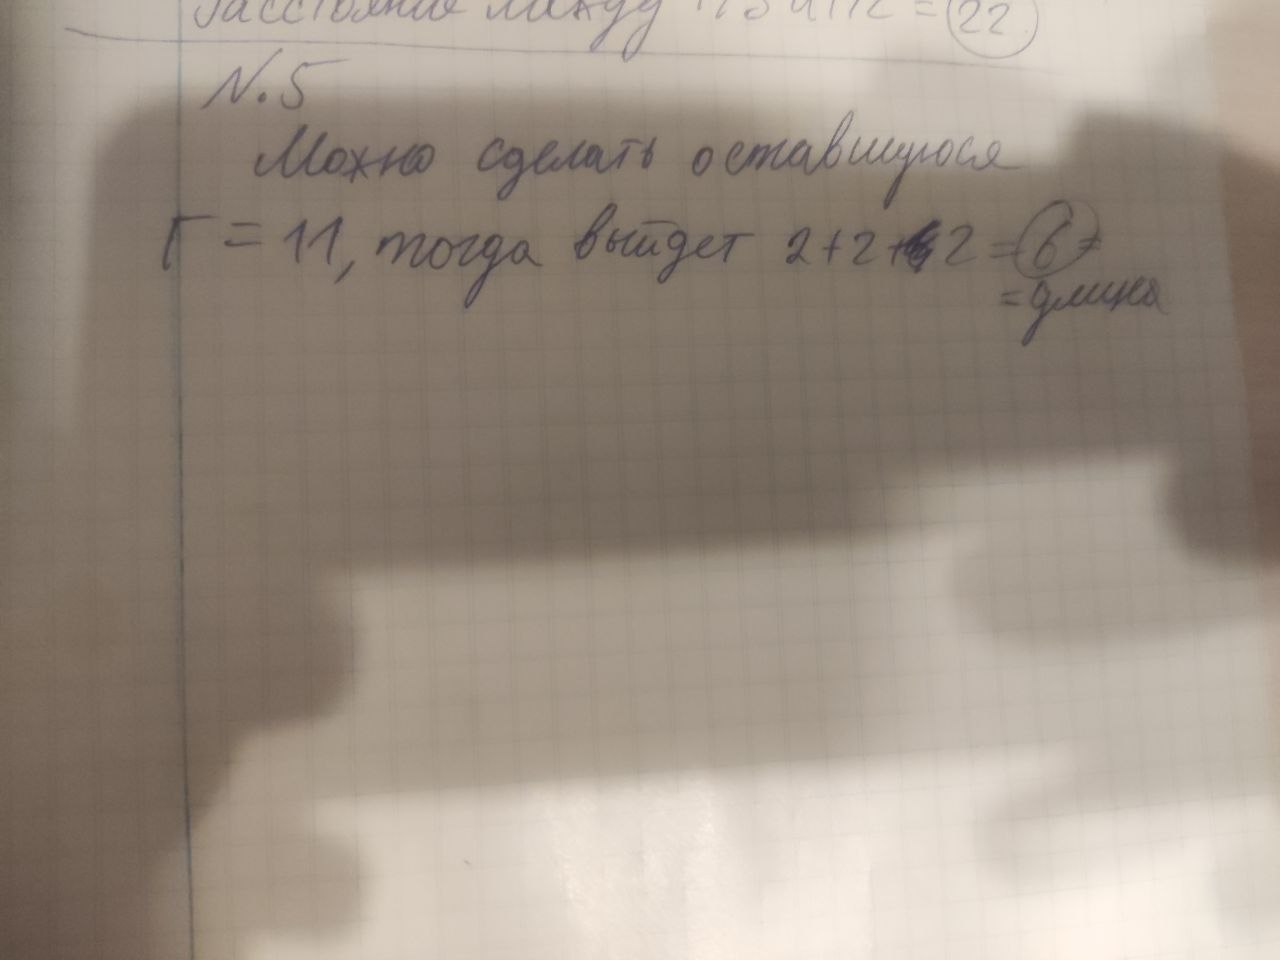 Расстояние между = 22.
N.5
Можно сделать оставшуюся
Г = 11, тогда выйдет 2+2+2 = 6 =
= длина